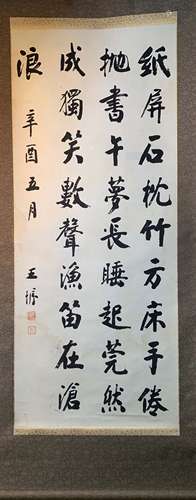 紙屏石枕竹方床手倦
拋書午夢長睡起莞然
成獨笑數聲漁笛在滄
浪
辛酉五月
王